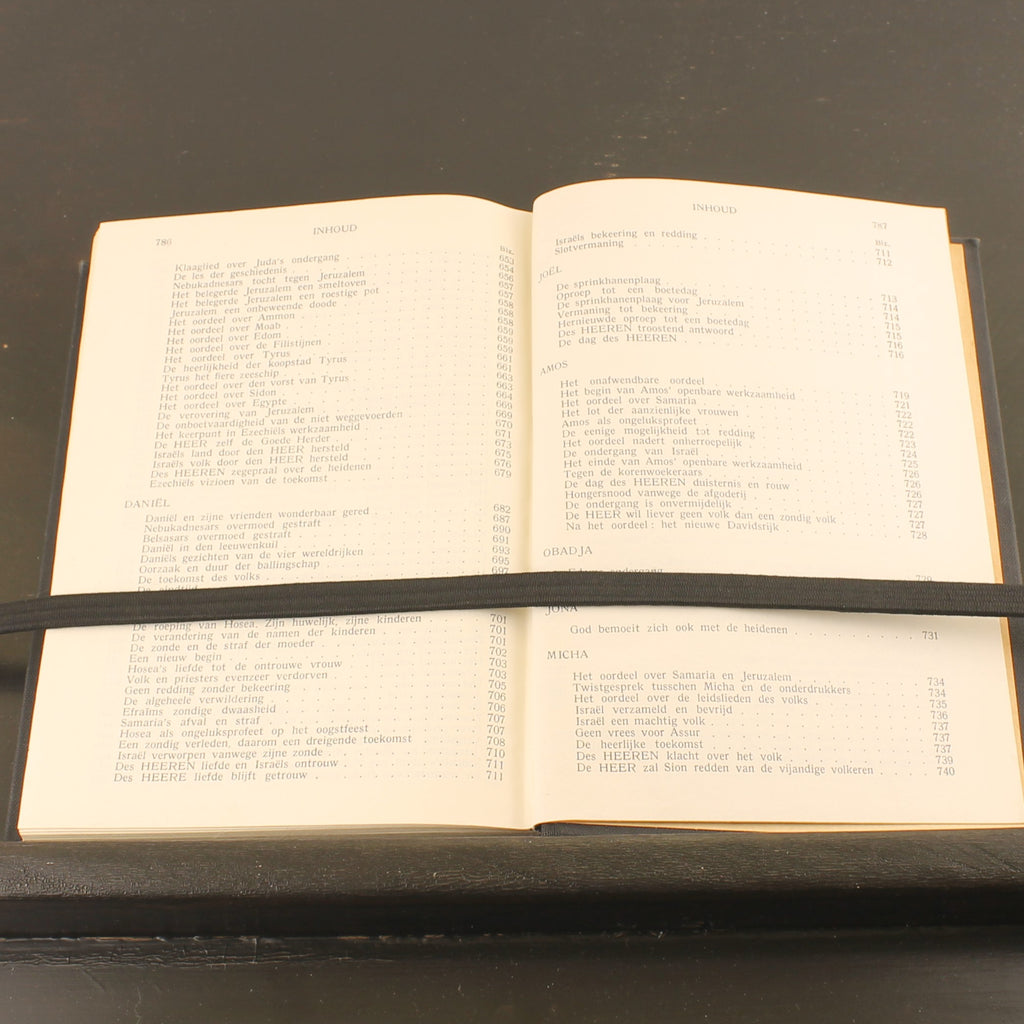 786
INHOUD
Blz.
Klaaglied over Juda's ondergang 653
De les der geschiedenis 654
Nebukadnesars tocht tegen Jeruzalem 656
Het belegerde Jeruzalem een smeltoven 657
Het belegerde Jeruzalem een roestige pot 657
Jeruzalem een onbeweende doode 658
Het oordeel over Ammon 658
Het oordeel over Moab 659
Het oordeel over Edom 659
Het oordeel over de Filistijnen 659
Het oordeel over Tyrus 661
De heerlijkheid der koopstad Tyrus 661
Tyrus het fiere zeeschip 663
Het oordeel over den vorst van Tyrus 663
Het oordeel over Sidon 664
Het oordeel over Egypte 669
De verovering van Jeruzalem 669
De onboetvaardigheid van de niet weggevoerden 670
Het keerpunt in Ezechiëls werkzaamheid 671
De HEER zelf de Goede Herder 673
Israëls land door den HEER hersteld 675
Israëls volk door den HEER hersteld 676
Des HEEREN zegepraal over de heidenen 679
Ezechiëls vizioen van de toekomst
DANIËL
Daniël en zijne vrienden wonderbaar gered 682
Nebukadnesars overmoed gestraft 687
Belsasars overmoed gestraft 690
Daniël in den leeuwenkuil 691
Daniëls gezichten van de vier wereldrijken 693
Oorzaak en duur der ballingschap 695
De toekomst des volks 697
De roeping van Hosea. Zijn huwelijk, zijne kinderen 701
De verandering van de namen der kinderen 701
De zonde en de straf der moeder 701
Een nieuw begin 702
Hosea's liefde tot de ontrouwe vrouw 703
Volk en priesters evenzeer verdorven 703
Geen redding zonder bekeering 705
De algeheele verwildering 706
Efraïms zondige dwaasheid 706
Samaria's afval en straf 707
Hosea als ongeluksprofeet op het oogstfeest 707
Een zondig verleden, daarom een dreigende toekomst 708
Israël verworpen vanwege zijne zonde 710
Des HEEREN liefde en Israëls ontrouw 711
Des HEERE liefde blijft getrouw 711
INHOUD
787
Blz.
Israëls bekeering en redding 711
Slotvermaning 712
JOËL
De sprinkhanenplaag 713
Oproep tot een boetedag 714
De sprinkhanenplaag voor Jeruzalem 714
Vermaning tot bekeering 715
Hernieuwde oproep tot een boetedag 715
Des HEEREN troostend antwoord 716
De dag des HEEREN 716
AMOS
Het onafwendbare oordeel 719
Het begin van Amos' openbare werkzaamheid 721
Het oordeel over Samaria 722
Het lot der aanzienlijke vrouwen 722
Amos als ongeluksprofeet 722
De eenige mogelijkheid tot redding 723
Het oordeel nadert onherroepelijk 724
De ondergang van Israël 725
Het einde van Amos' openbare werkzaamheid 726
Tegen de korenwoekeraars 726
De dag des HEEREN duisternis en rouw 726
Hongersnood vanwege de afgoderij 727
De ondergang is onvermijdelijk 727
De HEER wil liever geen volk dan een zondig volk 727
Na het oordeel: het nieuwe Davidsrijk 728
OBADJA
Edoms ondergang 729
JONA
God bemoeit zich ook met de heidenen 731
MICHA
Het oordeel over Samaria en Jeruzalem 734
Twistgesprek tusschen Micha en de onderdrukkers 734
Het oordeel over de leidslieden des volks 735
Israël verzameld en bevrijd 736
Israël een machtig volk 737
Geen vrees voor Assur 737
De heerlijke toekomst 737
Des HEEREN klacht over het volk 739
De HEER zal Sion redden van de vijandige volkeren 740